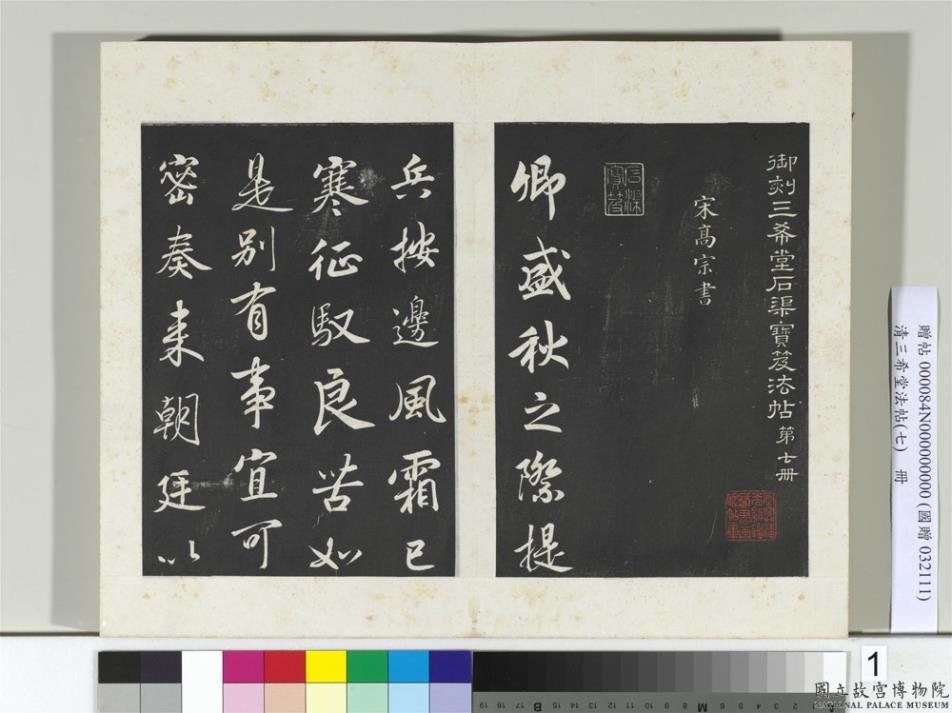 御刻三希堂石渠寶笈法帖第七冊
宋高宗書
卿盛秋之際提
兵按邊風霜已
寒征馭良苦如
是別有事宜可
密奏來朝廷以
贈帖 000084N000000000 (國贈 032111)
清三希堂法帖(七) 冊
1
國立故宮博物院
NATIONAL PALACE MUSEUM